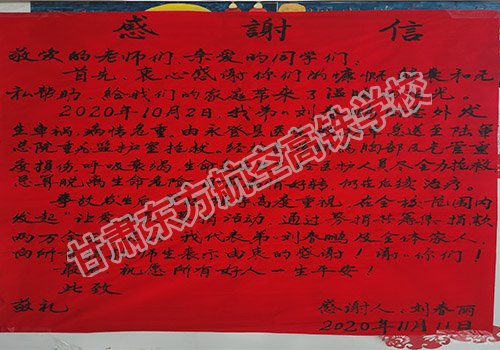 感謝信
敬爱的老师们、亲爱的同学们:
首先,衷心感谢你们的慷慨
私帮助,给我们的家庭带来了温 光。
2020年10月2日,我弟 刘春 意外发
生车祸,病情危重。由永登县医 急送至陆军
总院重症监护室抢救。经 胸部及气管重
度损伤,呼吸衰竭,生命 医护人员尽全力抢救
总算脱离生命危险 有好转,仍在后续治疗。
事故发生后 高度重视,在全校范围内
发起“让爱 活动,通过 募集捐款
两万余 我代表弟弟刘春鹏及全体家人,
向所 师生表示由衷的感谢!谢谢你们!
最 祝愿所有好人一生平安!
此致
敬礼
感谢人:刘春丽
2020年11月11日
甘肃东方航空高铁学校